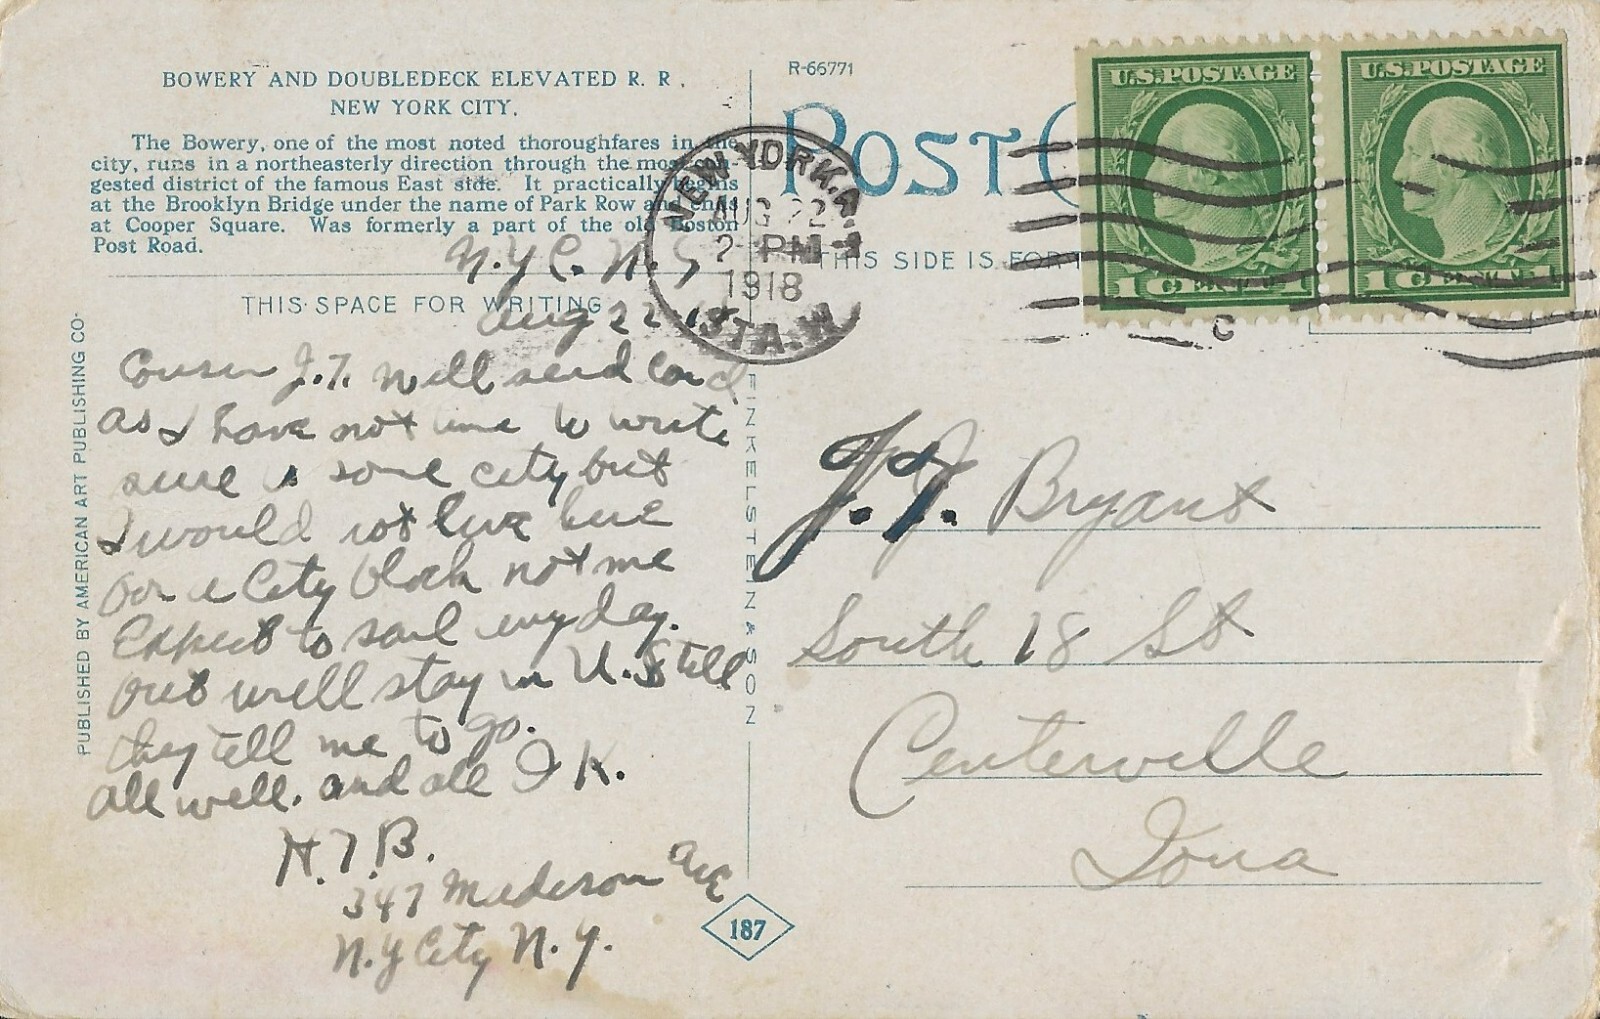 BOWERY AND DOUBLEDECK ELEVATED R. R.
NEW YORK CITY.
The Bowery, one of the most noted thoroughfares in the
city, runs in a northeasterly direction through the most
gested district of the famous East side. It practically begins
at the Brooklyn Bridge under the name of Park Row and ends
at Cooper Square. Was formerly a part of the old Boston
Post Road.
N.Y.C. N.Y
THIS SPACE FOR WRITING
Aug 22 18
Cousin J.T. will send card
as I have not time to write
sure is some city but
I would not live here
for a City block not me
Expect to sail any day.
but will stay in U.S till
they tell me to go.
all well. and all O K.
H.T.B.
347 Madison Ave
N.Y City N.Y.
PUBLISHED BY AMERICAN ART PUBLISHING CO.
FINKELSTEIN & SON
187
R-66771
POST C
THIS SIDE IS FOR
NEW YORK, N.Y.
AUG 22
2-PM
1918
STA. W
U.S. POSTAGE
1
U.S. POSTAGE
1
C
J.T. J.T. Bryant
South 18 St
Centerville
Iowa